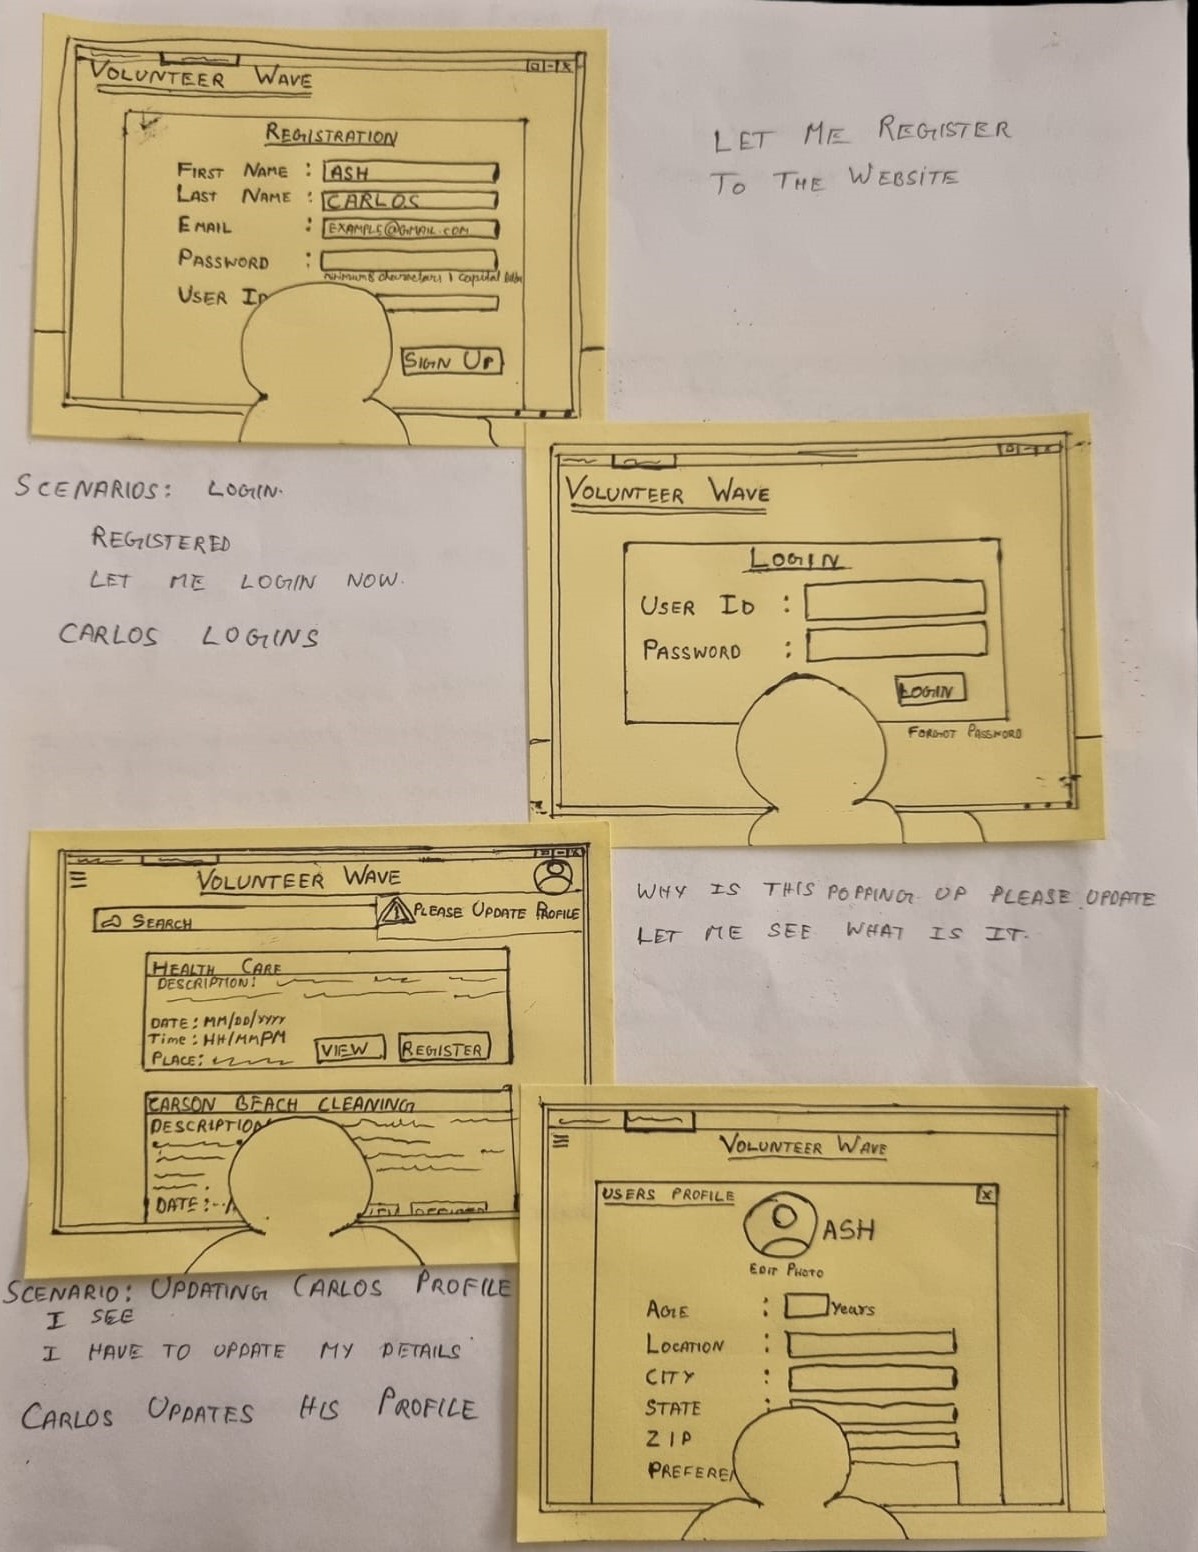 VOLUNTEER WAVE
REGISTRATION
FIRST NAME : ASH
LAST NAME : CARLOS
EMAIL : EXAMPLE@GMAIL.COM
PASSWORD :
characters 1 capital
USER ID
SIGN UP
LET ME REGISTER
TO THE WEBSITE
SCENARIOS: LOGIN.
REGISTERED
LET ME LOGIN NOW.
CARLOS LOGINS
VOLUNTEER WAVE
LOGIN
USER ID :
PASSWORD :
LOGIN
FORGOT PASSWORD
VOLUNTEER WAVE
SEARCH
PLEASE UPDATE PROFILE
HEALTH CARE
DESCRIPTION:
DATE: MM/DD/YYYY
Time: HH/MMPM
PLACE:
VIEW REGISTER
CARSON BEACH CLEANING
DESCRIPTION
DATE:
WHY IS THIS POPPING UP PLEASE UPDATE
LET ME SEE WHAT IS IT.
SCENARIO: UPDATING CARLOS PROFILE
I SEE
I HAVE TO UPDATE MY DETAILS
CARLOS UPDATES HIS PROFILE
VOLUNTEER WAVE
USERS PROFILE X
ASH
EDIT PHOTO
AGE : years
LOCATION :
CITY :
STATE :
ZIP
PREFERE